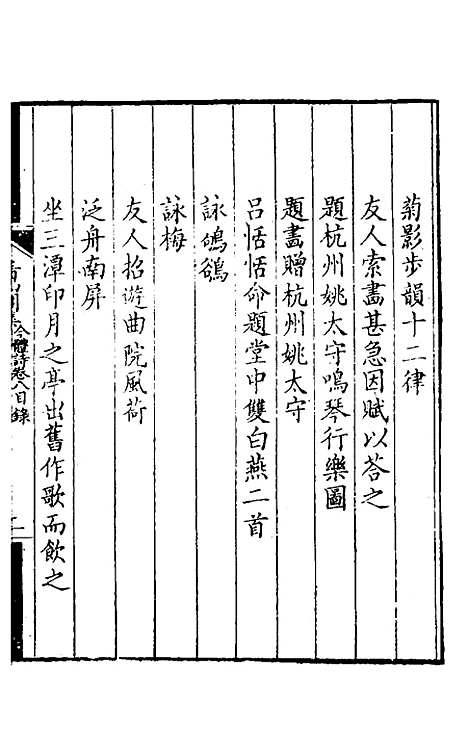 菊影步韻十二律
友人索畫甚急因賦以荅之
題杭州姚太守鳴琴行樂圖
題畫贈杭州姚太守
呂恬恬命題堂中雙白燕二首
詠鴝鵒
詠梅
友人招遊曲院風荷
泛舟南屏
坐三潭印月之亭出舊作歌而飲之
今體詩卷八目錄